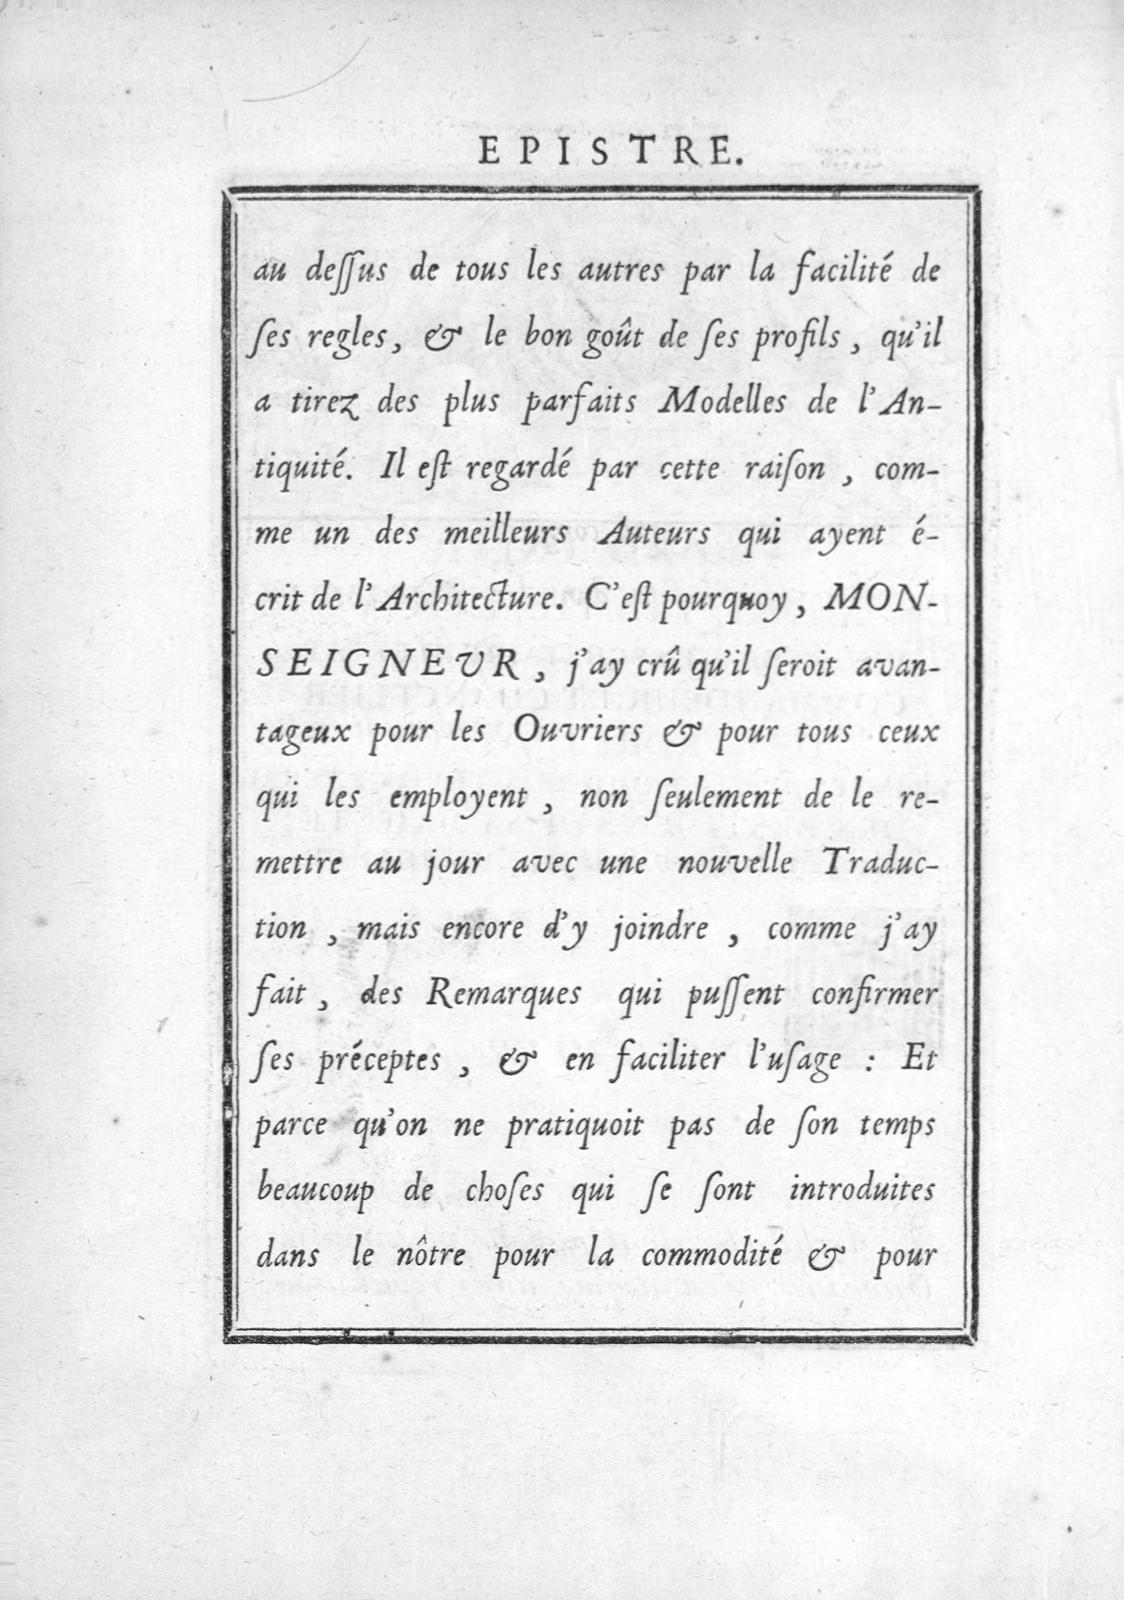 EPISTRE.
au deſſus de tous les autres par la facilité de
ſes regles, & le bon goût de ſes profils , qu'il
a tirez des plus parfaits Modelles de l'An-
tiquité. Il eſt regardé par cette raiſon , com-
me un des meilleurs Auteurs qui ayent é-
crit de l'Architecture. C'eſt pourquoy , MON-
SEIGNEUR , j'ay crû qu'il ſeroit avan-
tageux pour les Ouvriers & pour tous ceux
qui les employent , non ſeulement de le re-
mettre au jour avec une nouvelle Traduc-
tion , mais encore d'y joindre , comme j'ay
fait , des Remarques qui puſſent confirmer
ſes préceptes , & en faciliter l'uſage : Et
parce qu'on ne pratiquoit pas de ſon temps
beaucoup de choſes qui ſe ſont introduites
dans le nôtre pour la commodité & pour